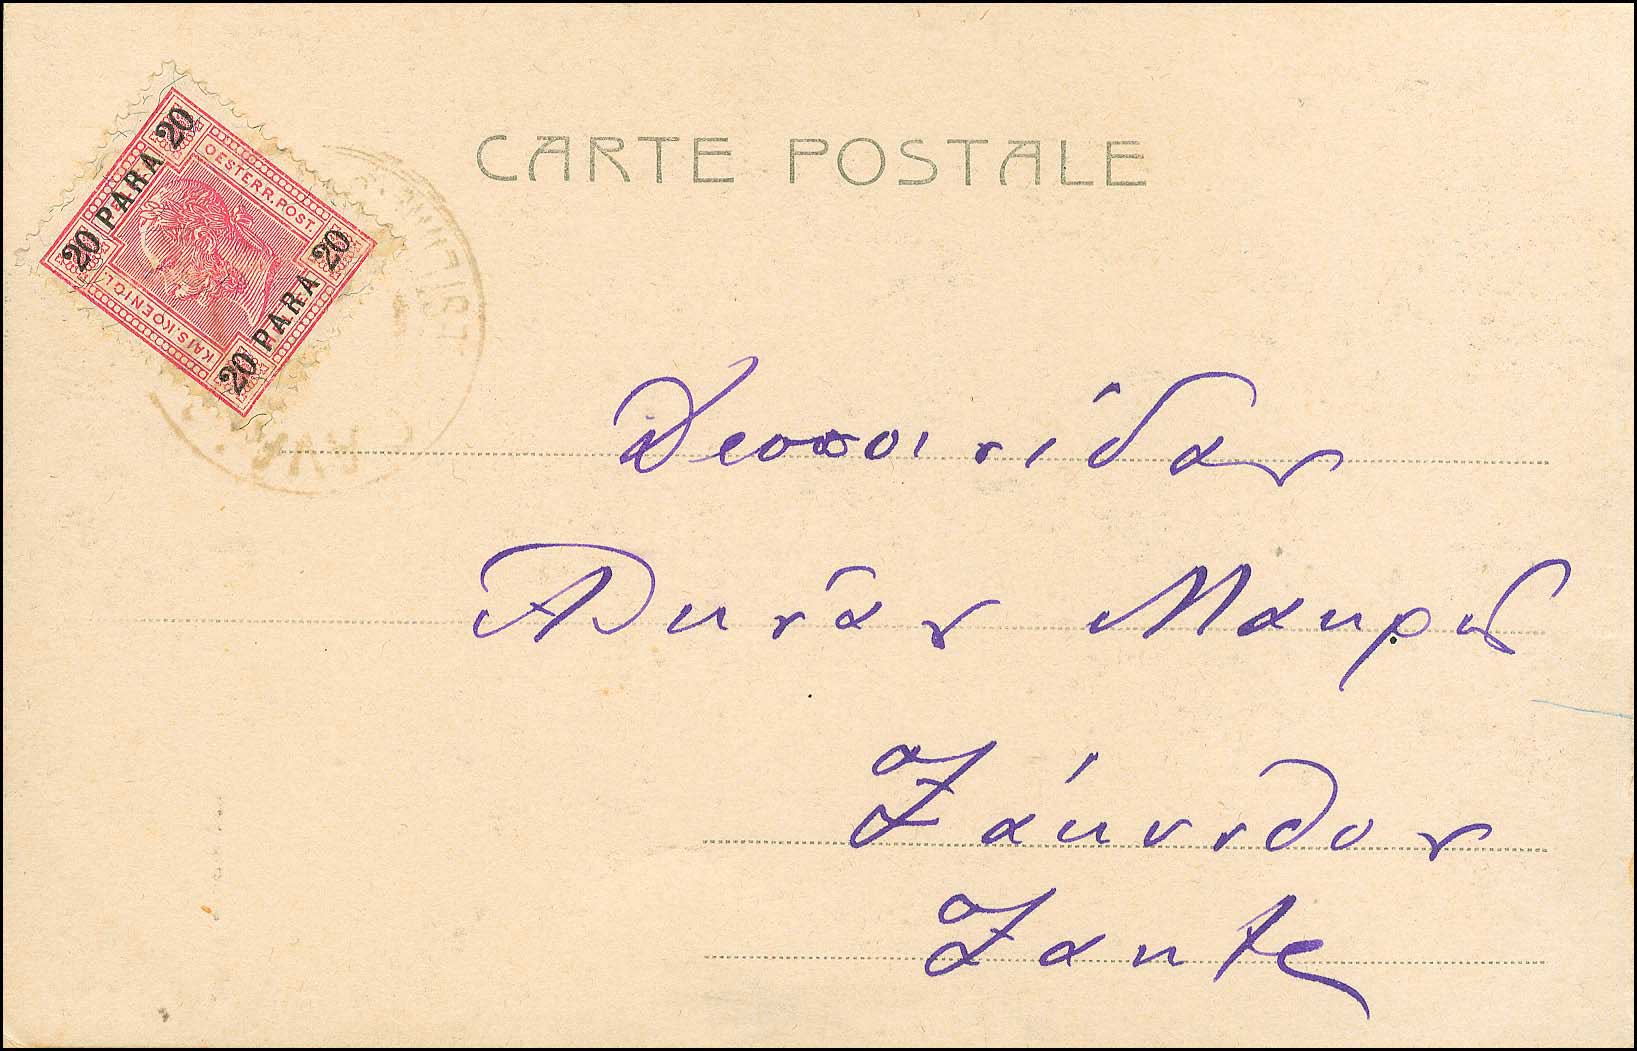 CARTE POSTALE
20 PARA 20
OESTERR. POST.
KAIS. KOENIGL.
20 PARA 20
Δεσποινίδαν
Μακρῆ
Ζάκυνθον
Zante